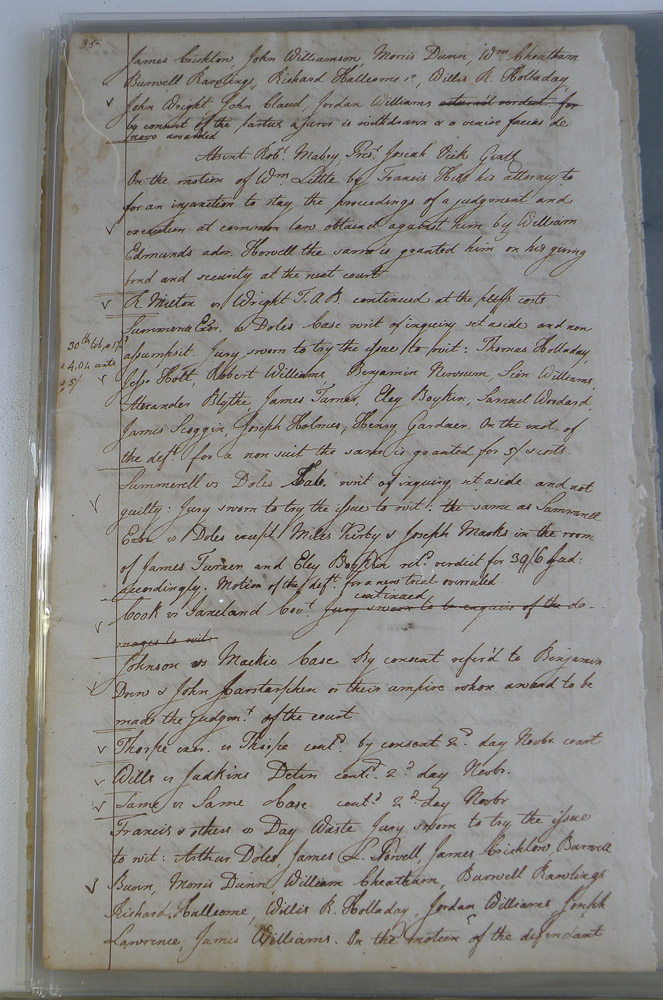 35
James Cricklow, John Williamson, Morris Dunn, Wm Cheatham
Burwell Rawlings, Richard Hallcome, Willis R. Holladay,
John Wright John Claud, Jordan Williams returned verdict for
by consent of the parties a juror is withdrawn & a venire facias de
novo awarded
Absent Robt. Mabry, Prest. Josiah Vick Gentl
On the motion of Wm. Little by Francis his attorney to
for an injunction to stay the proceedings of a judgment and
execution at common law obtained against him by William
Edmunds adm. Howell the same is granted him on his giving
bond and security at the next court
R. Milton vs Wright T.A.B. continued at the pltffs costs
Summerell Exr. vs Doles Case writ of inquiry set aside and non
assumpsit. Jury sworn to try the issue to wit: Thomas Holladay,
Jesse Holt Robert Williams, Benjamin Newsum, Sion Williams,
Alexander Blythe, James Turner, Eley Boykin, Samuel Woodard,
James Scoggin, Joseph Holmes, Henry Gardner. On the mot. of
the deft. for a non suit the same is granted for 5/ & costs
30th
4.04 cents
5/
Summerell vs Doles Case. writ of inquiry set aside and not
guilty: Jury sworn to try the issue to wit: the same as Summerell
Exor vs Doles except Miles Kirby & Joseph Masks in the room
of James Turner and Eley Boykin retd. verdict for 39/6 & jud:
accordingly. Motion of the deft. for a new trial overruled
continued
Cook vs Janeland Covt Jury sworn to be enquire of the da-
mages to wit
Johnson vs Mackie Case By consent refer'd to Benjamin
Drew & John Harstarphen or their umpire whose award to be
made the Judgmt. of the court
Thorpe vs Thorpe contd. by consent 2d. day Novbr court
Wills vs Judkins Detin contd. 2d day Novbr.
Same vs Same Case contd. 2d day Novbr
Francis & others vs Day Waste Jury sworn to try the issue
to wit: Arthur Doles, James L. Powell, James Cricklow, Burwell
Bunn, Morris Dunn, William Cheatham, Burwell Rawlings
Richard Hallcome, Willis R. Holladay, Jordan Williams Joseph
Lawrence, James Williams. On the motion of the defendant